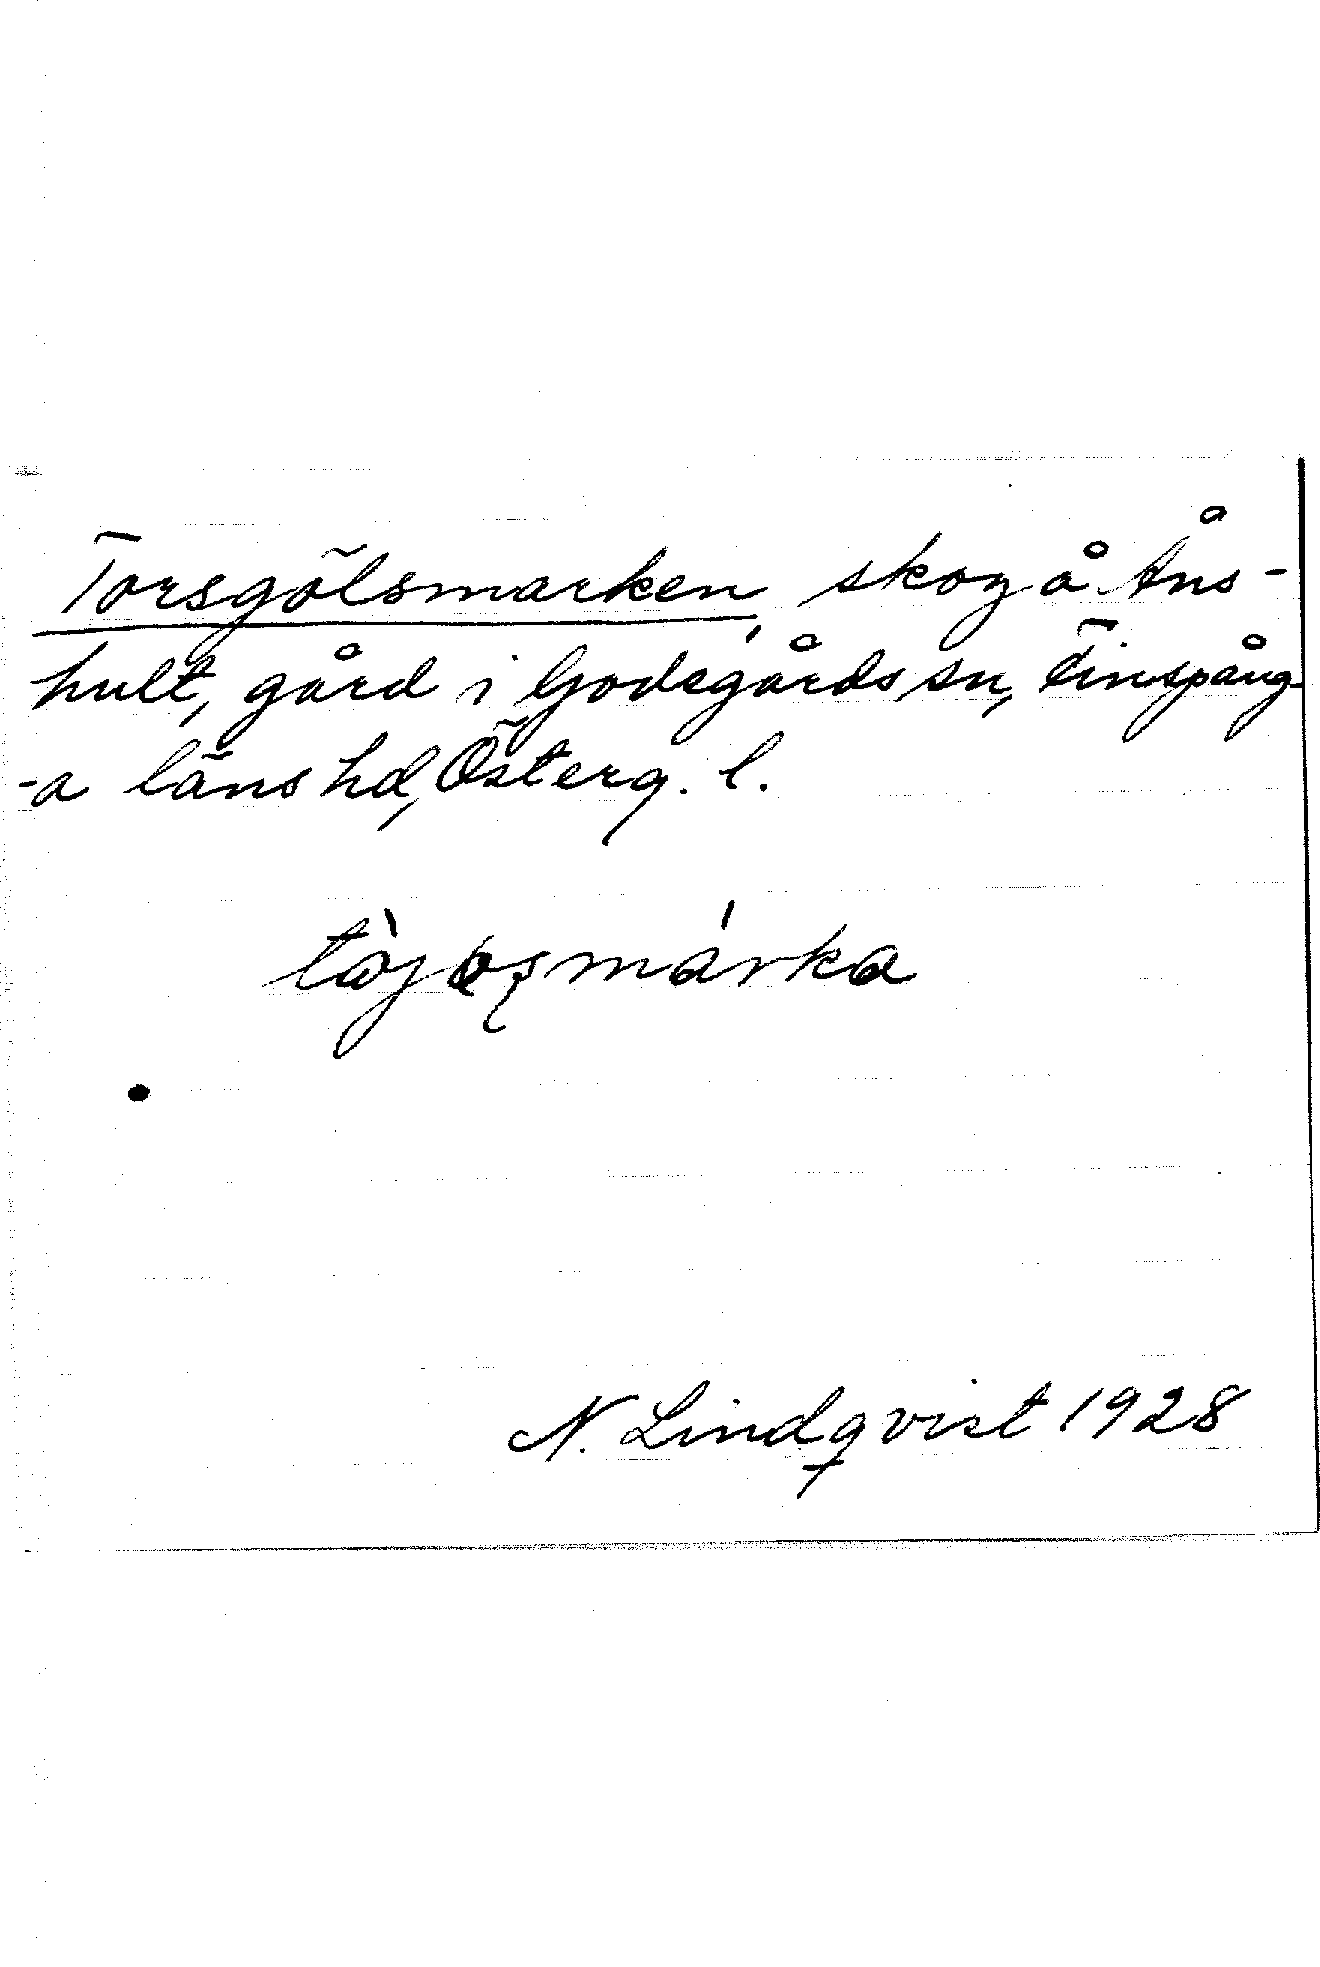 Torsgölsmarken, skog å Åns-
hult, gård i Godegårds sn, Finspång-
-a läns hd, Österg. l.
N. Lindqvist 1928